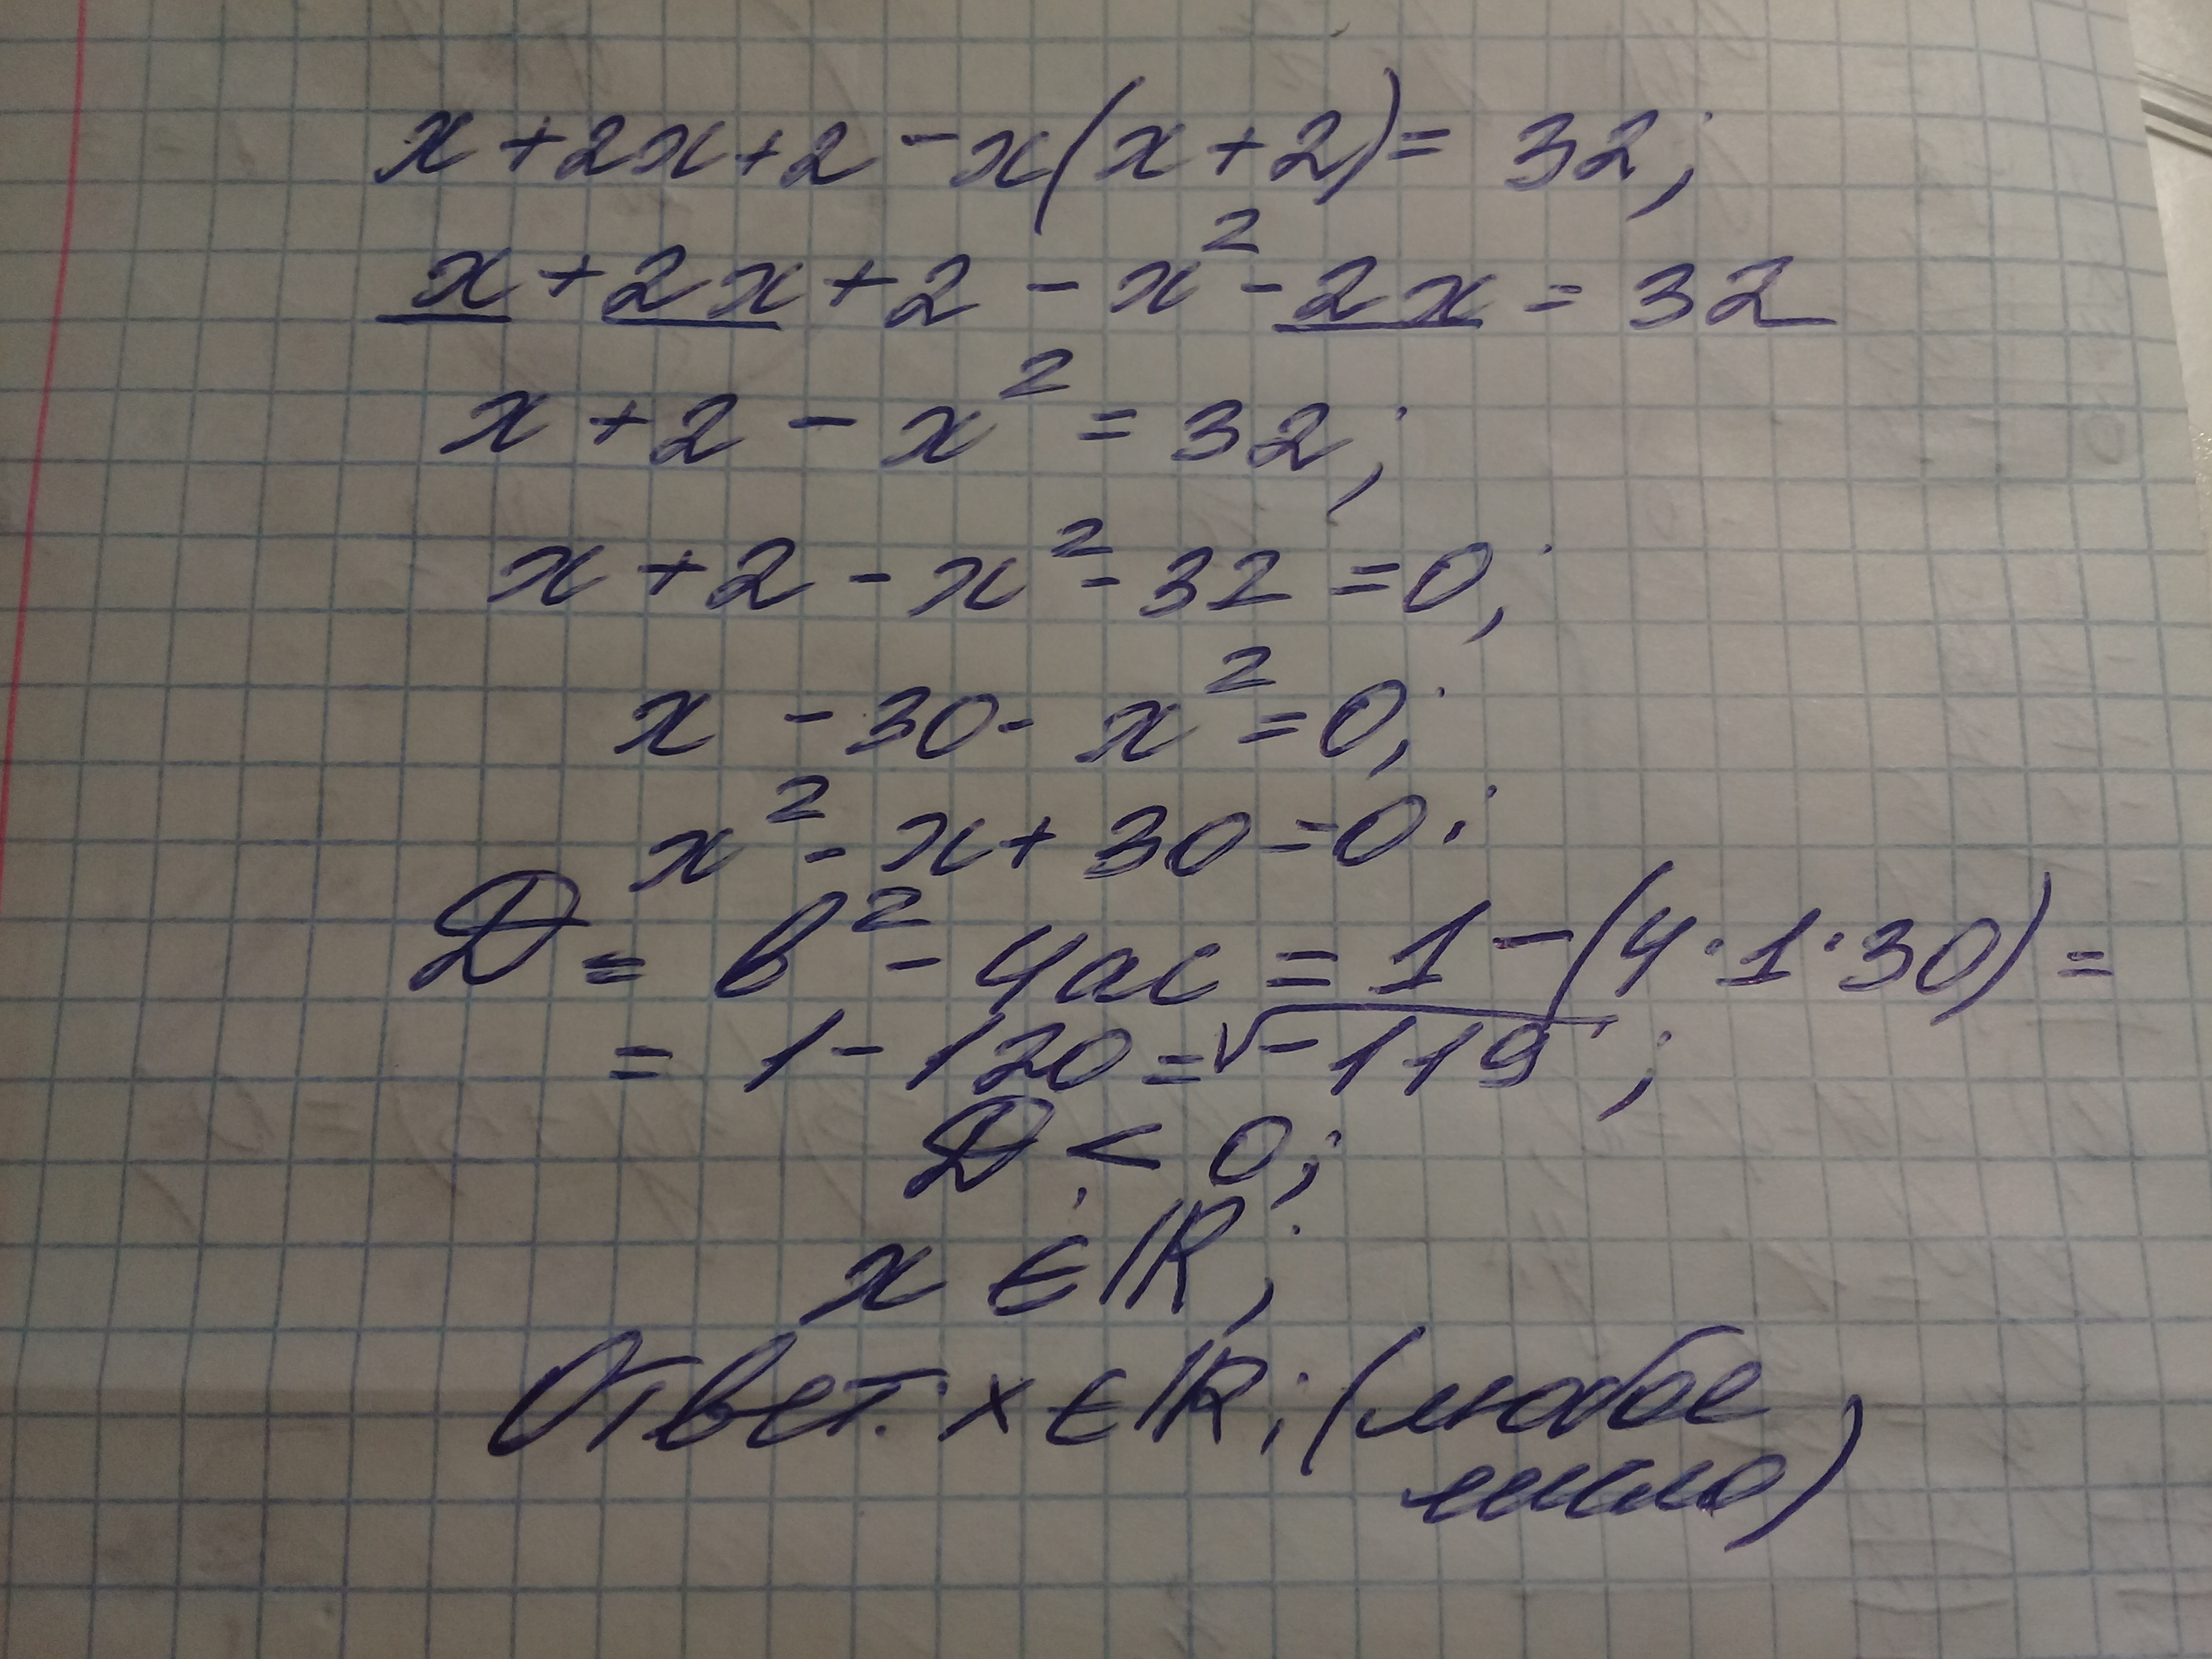 x + 2x + 2 - x(x + 2) = 32;
x + 2x + 2 - x² - 2x = 32
x + 2 - x² = 32;
x + 2 - x² - 32 = 0;
x - 30 - x² = 0;
x² - x + 30 = 0;
D = b² - 4ac = 1 - (4·1·30) =
= 1 - 120 = √-119;
D < 0;
x ∈ ℝ;
Ответ: x ∈ ℝ; (любое
число)